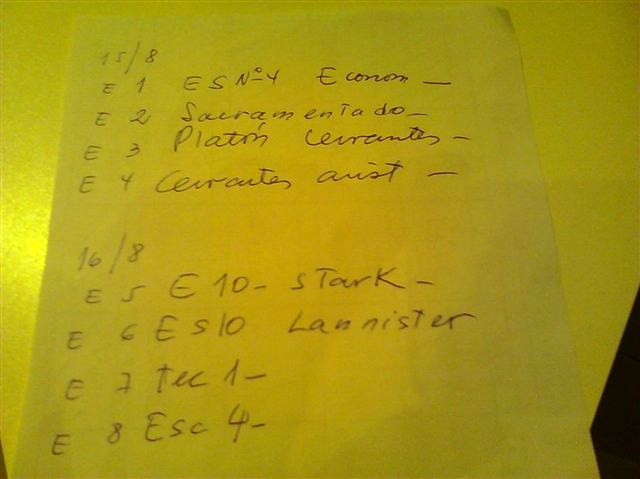 15/8
E 1 ES Nº4 Econom -
E 2 Sacramentado -
E 3 Platón Cervantes -
E 4 Cervantes arist -
16/8
E 5 E 10 - STarK -
E 6 ES10 Lannister
E 7 Tec 1 -
E 8 Esc 4 -